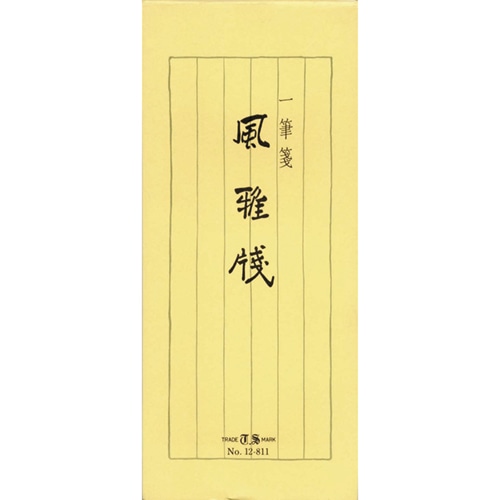 一筆箋
風雅牋
TRADE T.S MARK
No. 12-811